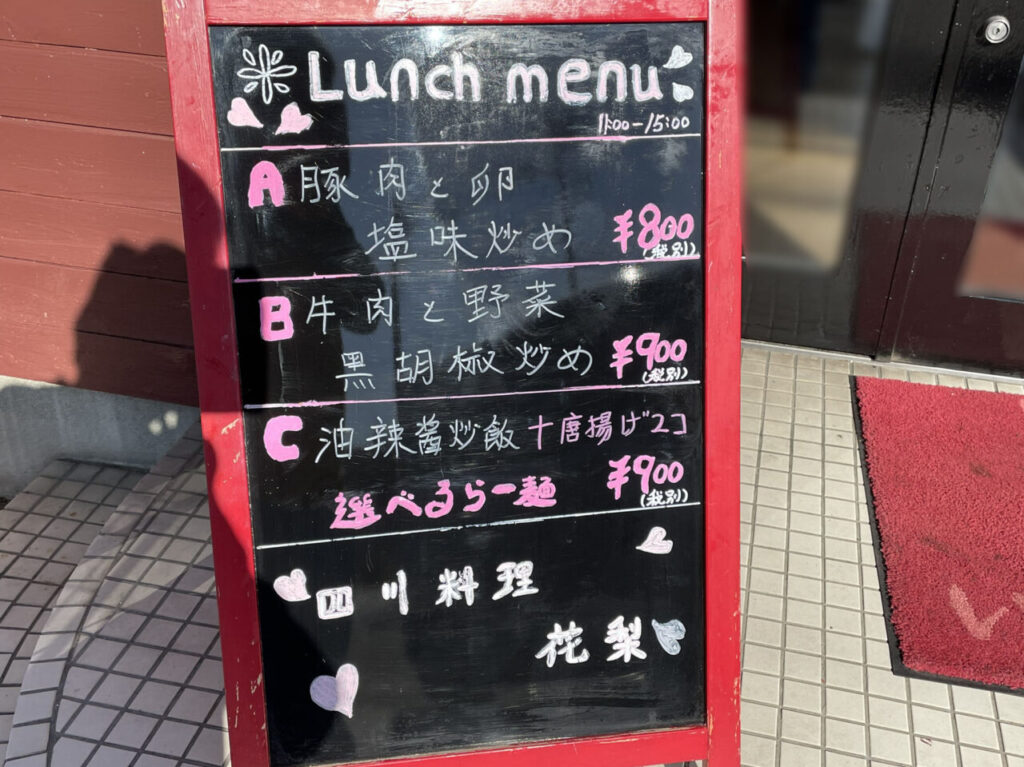 Lunch menu
11:00-15:00
A 豚肉と卵
塩味炒め ¥800
(税別)
B 牛肉と野菜
黒胡椒炒め ¥900
(税別)
C 油辣醤炒飯 +唐揚げ2コ
選べるらー麺 ¥900
(税別)
四川料理
花梨